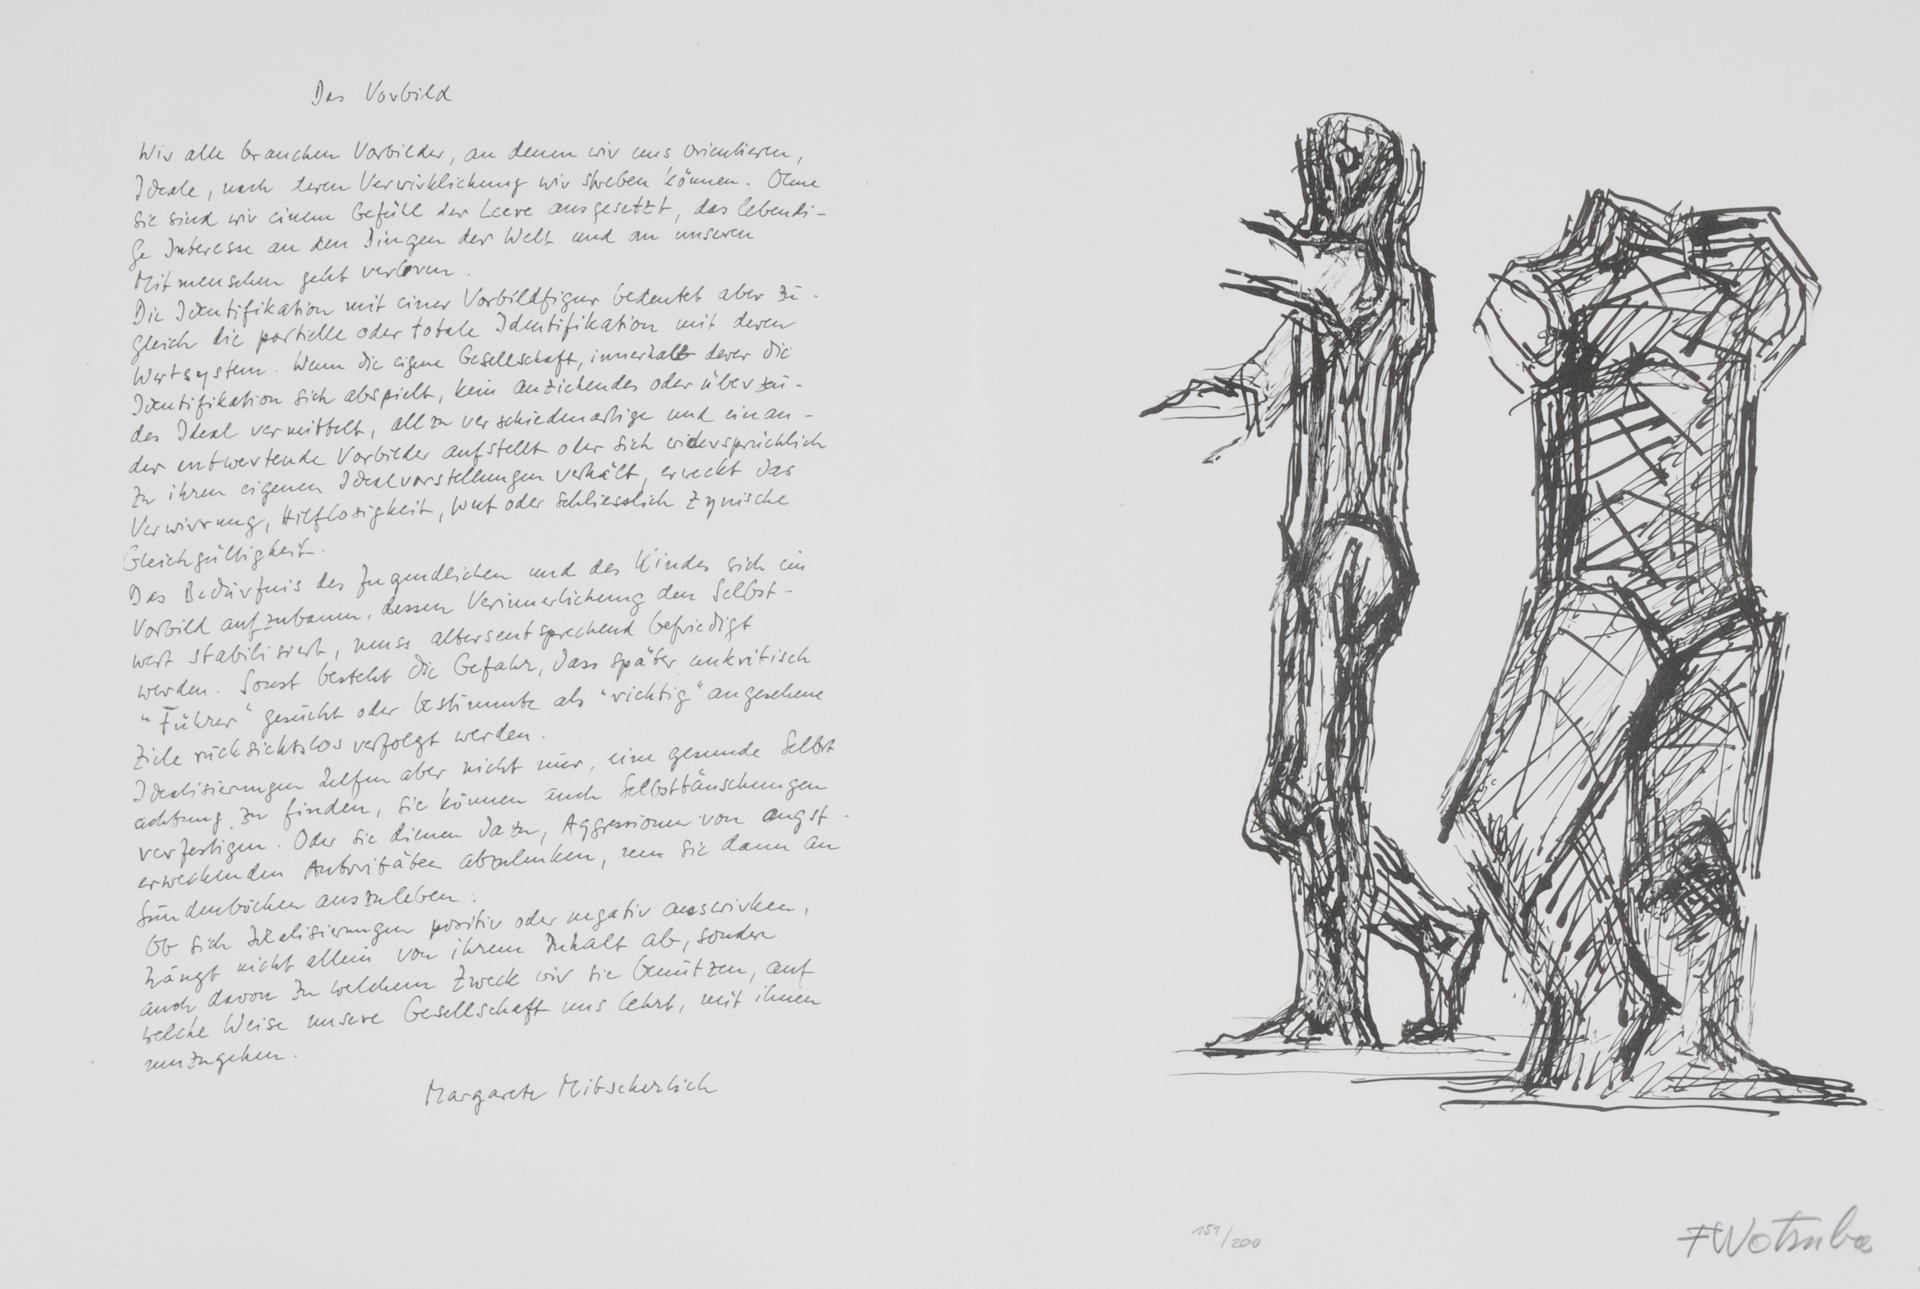 Das Vorbild
Wir alle brauchen Vorbilder, an denen wir uns orientieren,
Ideale, nach deren Verwirklichung wir streben können. Ohne
sie sind wir einem Gefühl der Leere ausgesetzt, das lebendi-
ge Interesse an den Dingen der Welt und an unseren
Mitmenschen geht verloren.
Die Identifikation mit einer Vorbildfigur bedeutet aber zu-
gleich die partielle oder totale Identifikation mit deren
Wertsystem. Wenn die eigene Gesellschaft, innerhalb derer die
Identifikation sich abspielt, kein anziehendes oder überzeu-
des Ideal vermittelt, allzu verschiedenartige und einan-
der entwertende Vorbilder aufstellt oder sich widersprüchlich
zu ihren eigenen Idealvorstellungen verhält, erweckt das
Verwirrung, Hilflosigkeit, Wut oder schliesslich zynische
Gleichgültigkeit.
Das Bedürfnis des Jugendlichen und des Kindes sich ein
Vorbild aufzubauen, dessen Verinnerlichung den Selbst-
wert stabilisiert, muss altersentsprechend befriedigt
werden. Sonst besteht die Gefahr, dass später unkritisch
"Führer" gesucht oder bestimmte als "richtig" angesehene
Ziele rücksichtslos verfolgt werden.
Idealisierungen helfen aber nicht nur, eine gesunde Selbst
achtung zu finden, sie können auch Selbsttäuschungen
verfestigen. Oder sie dienen dazu, Aggressionen von angst-
erweckenden Autoritäten abzulenken, um sie dann an
Sündenböcken auszuleben.
Ob sich Idealisierungen positiv oder negativ auswirken,
hängt nicht allein von ihrem Inhalt ab, sondern
auch davon zu welchem Zweck wir sie benützen, auf
welche Weise unsere Gesellschaft uns lehrt, mit ihnen
umzugehen.
Margarete Mitscherlich
151/200
FWotruba